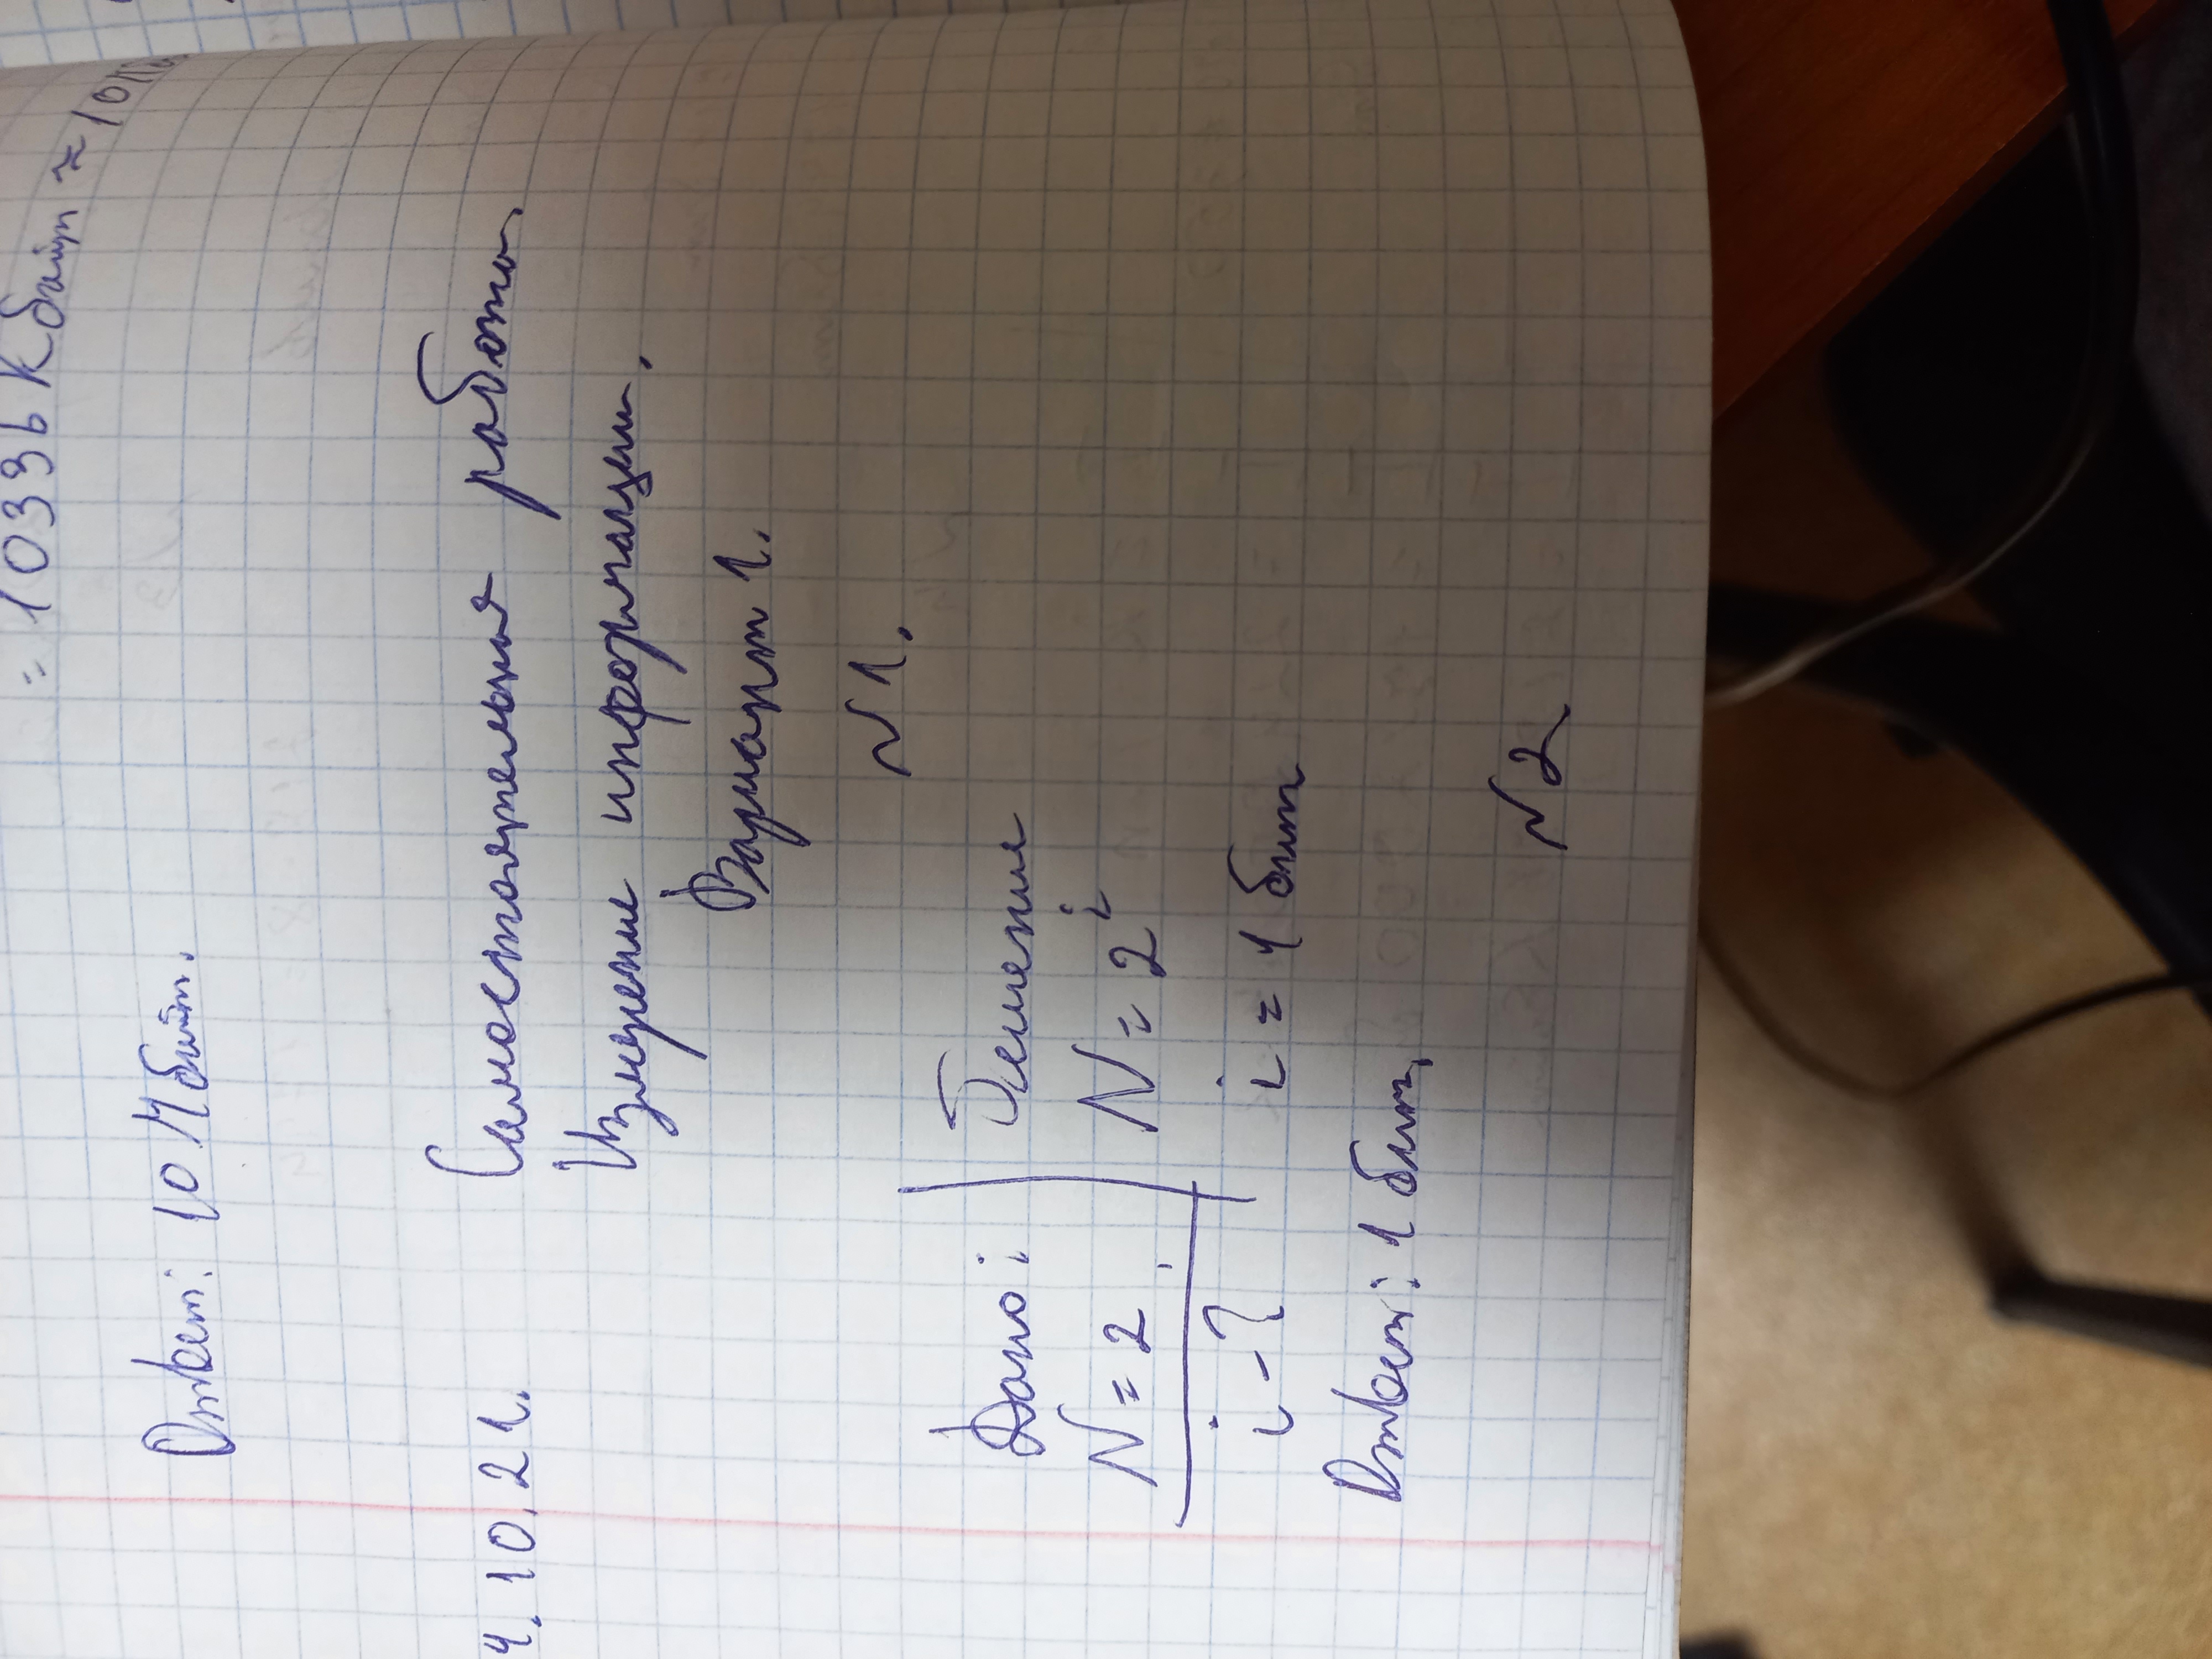 = 10336 Кбайт ≈ 10
Ответ: 10 Мбайт.
4.10.21.
Самостоятельная работа.
Измерение информации.
Вариант 1.
N1.
Дано:
N = 2
i - ?
Решение
N = 2^i
i = 1 бит
Ответ: 1 бит.
N2